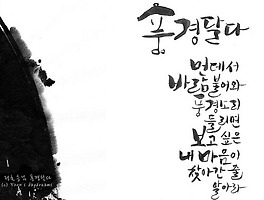 풍경달다
먼데서
바람불어와
풍경소리
들리면
보고싶은
내마음이
찾아간 줄
알아라
풍경달다
daydreams